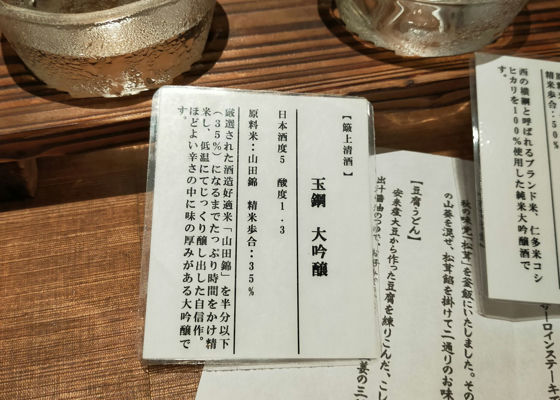 【極上清酒】
玉鋼　大吟醸
日本酒度5　酸度1．3
原料米：山田錦　精米歩合：35％
厳選された酒造好適米「山田錦」を半分以下
（35％）になるまでたっぷり時間をかけ精
米し、低温にてじっくり醸し出した自信作。
ほどよい辛さの中に味の厚みがある大吟醸で
す。
精米歩合：50％
西の横綱と呼ばれるブランド米、仁多米コシ
ヒカリを100％使用した純米大吟醸酒で
す。
ーロインステーキ
秋の味覚「松茸」を釜飯にいたしました。その
の山葵を混ぜ、松茸餡を掛けて二通りのお味
【豆腐うどん】
安来産大豆から作った豆腐を練りこんだ、こし
出汁醤油のつゆで、お好み
姜の三